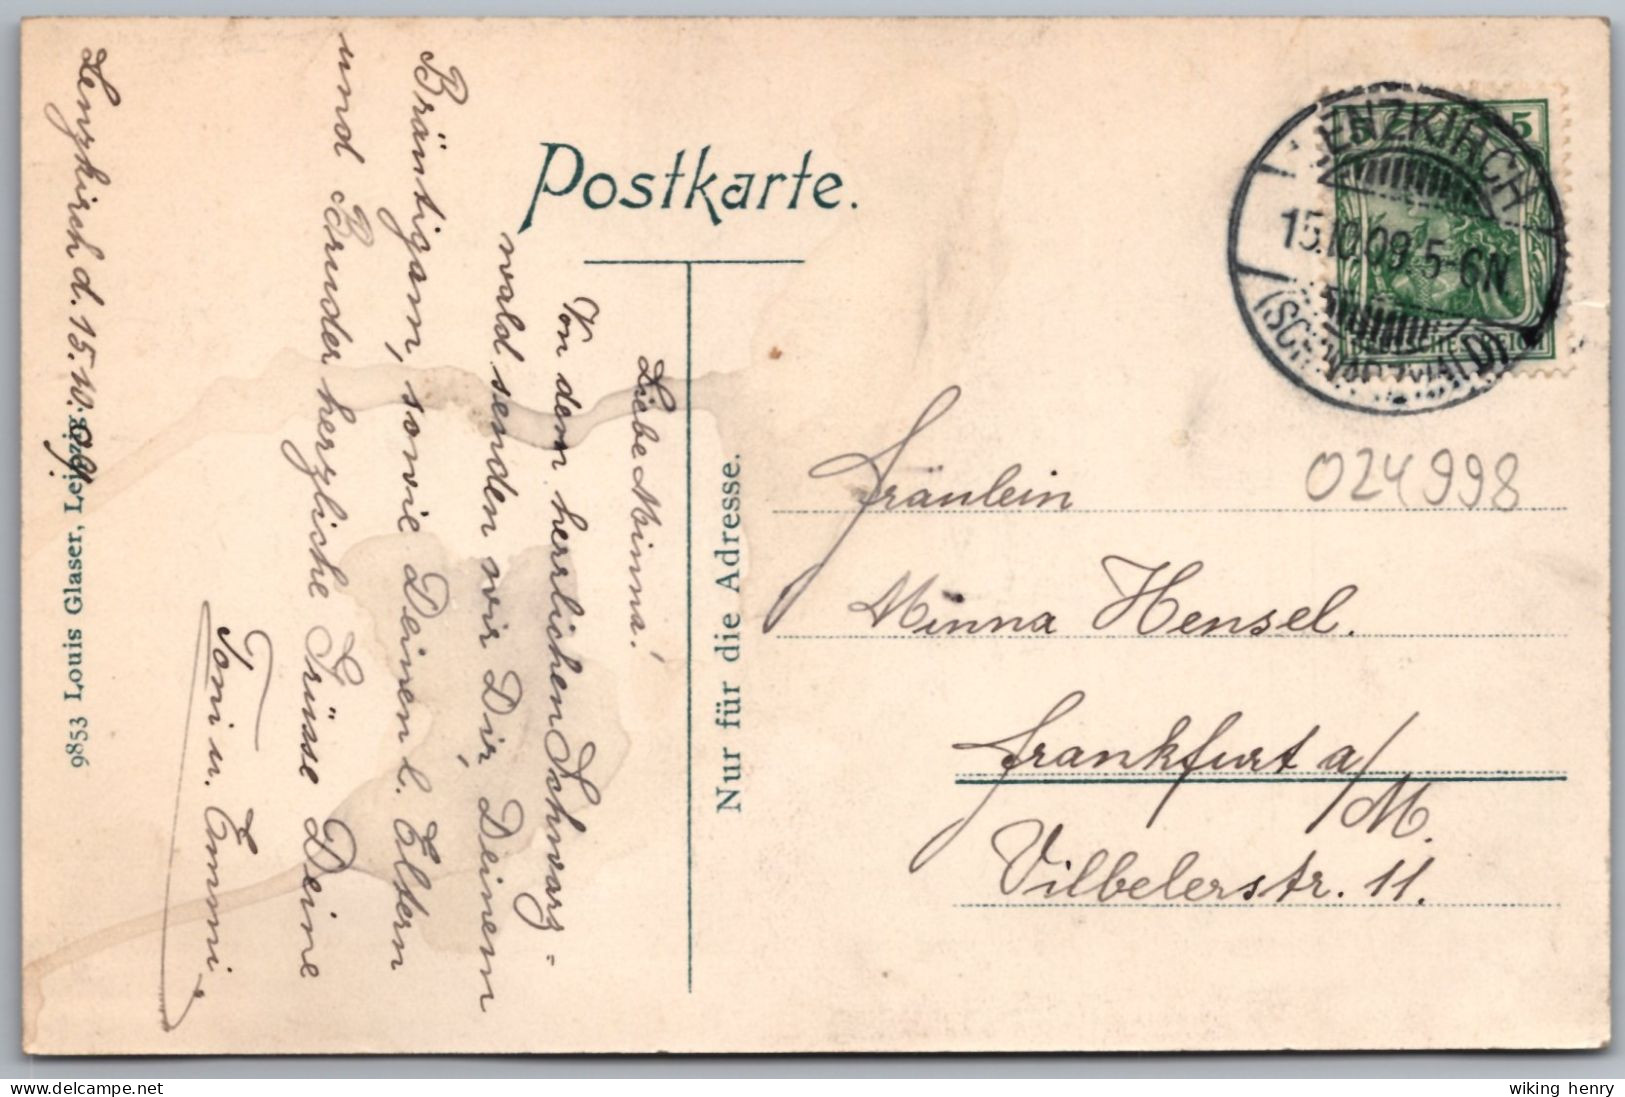 Postkarte.
Lenzkirch d. 15.10.09.
Liebe Minna!
Von dem herrlichen Schwarz-
wald senden wir Dir, Deinem
Bräutigam, sowie Deinen l. Eltern
und Bruder herzliche Grüsse Deine
Toni u. Emmi.
9853 Louis Glaser, Leipzig.
Nur für die Adresse.
LENZKIRCH
15.10.09 5-6N
(SCHWARZWALD)
5
DEUTSCHES REICH
024998
Fräulein
Minna Hensel.
Frankfurt a/M.
Vilbelerstr. 11.
delcampe.net
wiking henry